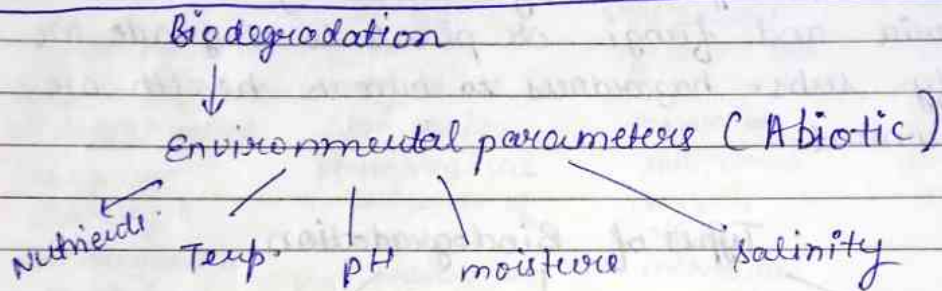 Biodegradation
Environmental parameters (Abiotic)
Nutrients. Temp. pH moisture salinity